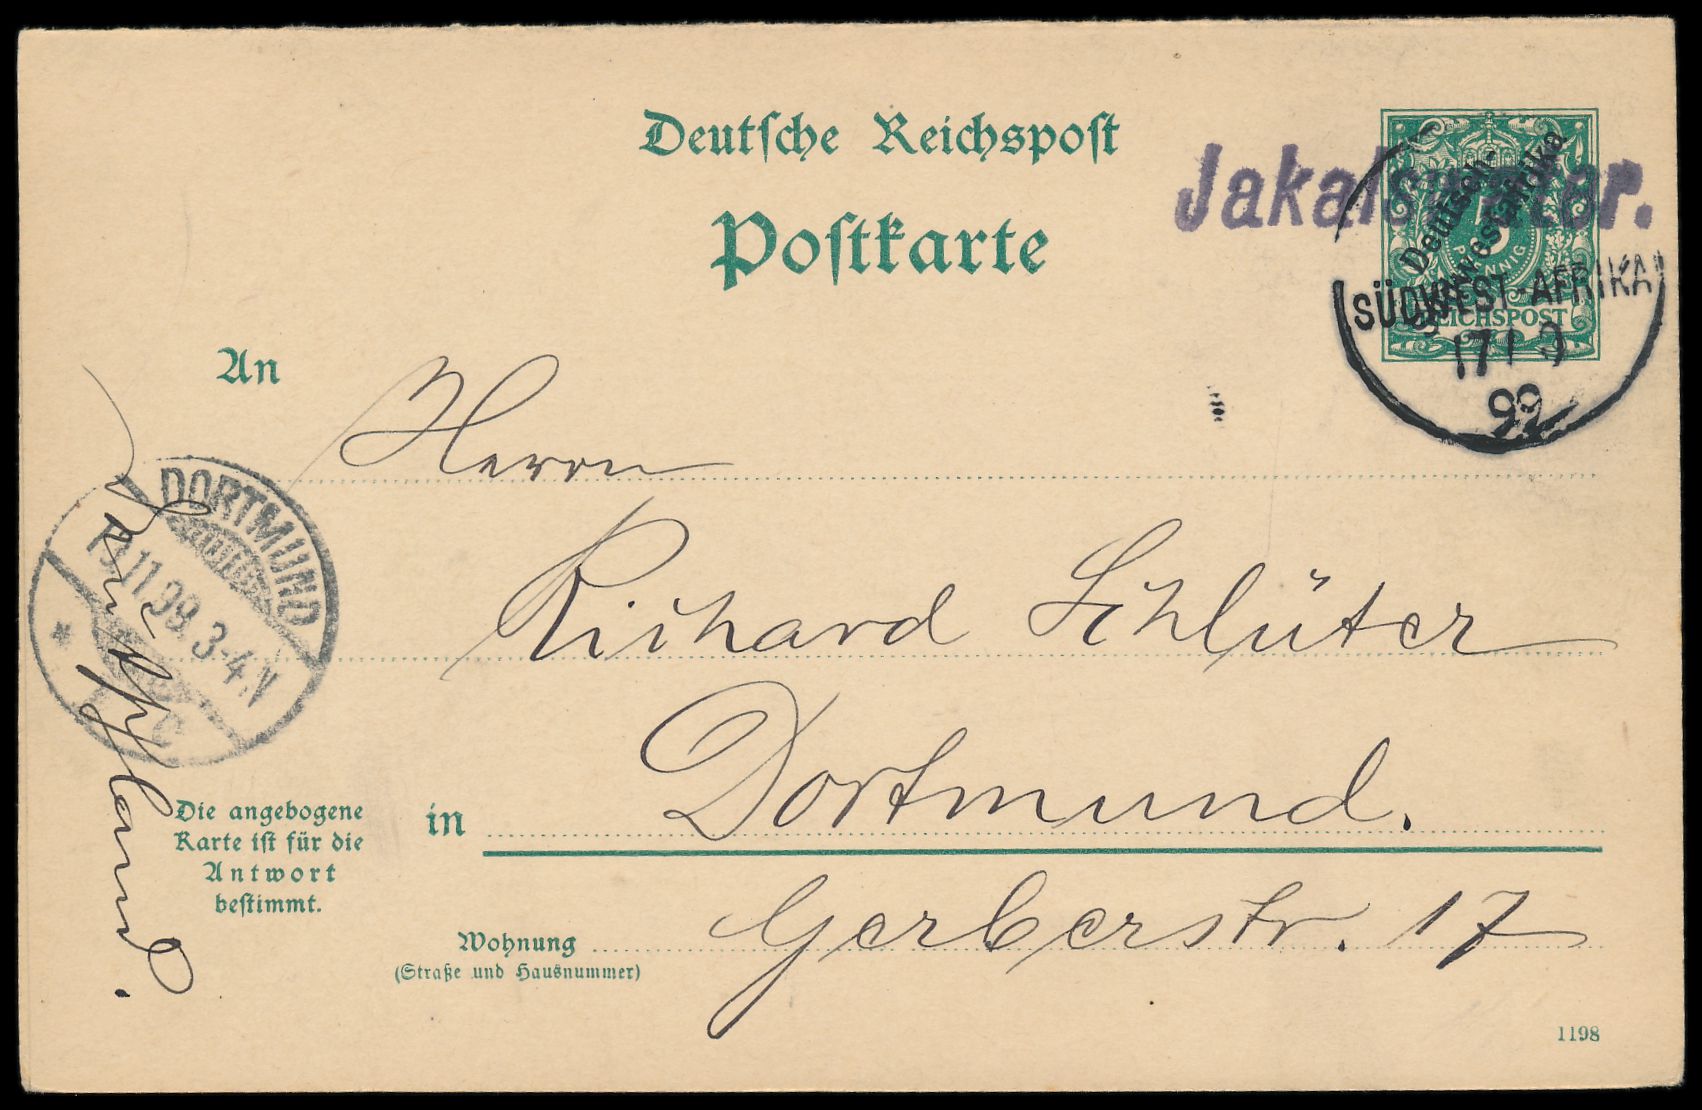 Deutsche Reichspost
Postkarte
Jakalswater.
Deutsch-
Südwestafrika
PFENNIG
REICHSPOST
SÜDWEST-AFRIKA
17/9
99
An
Herrn
Richard Schlüter
in Dortmund.
Wohnung Gerberstr. 17
(Straße und Hausnummer)
Die angebogene
Karte ist für die
Antwort
bestimmt.
DORTMUND
11.99.3-4.N
C
Deutschland.
1198